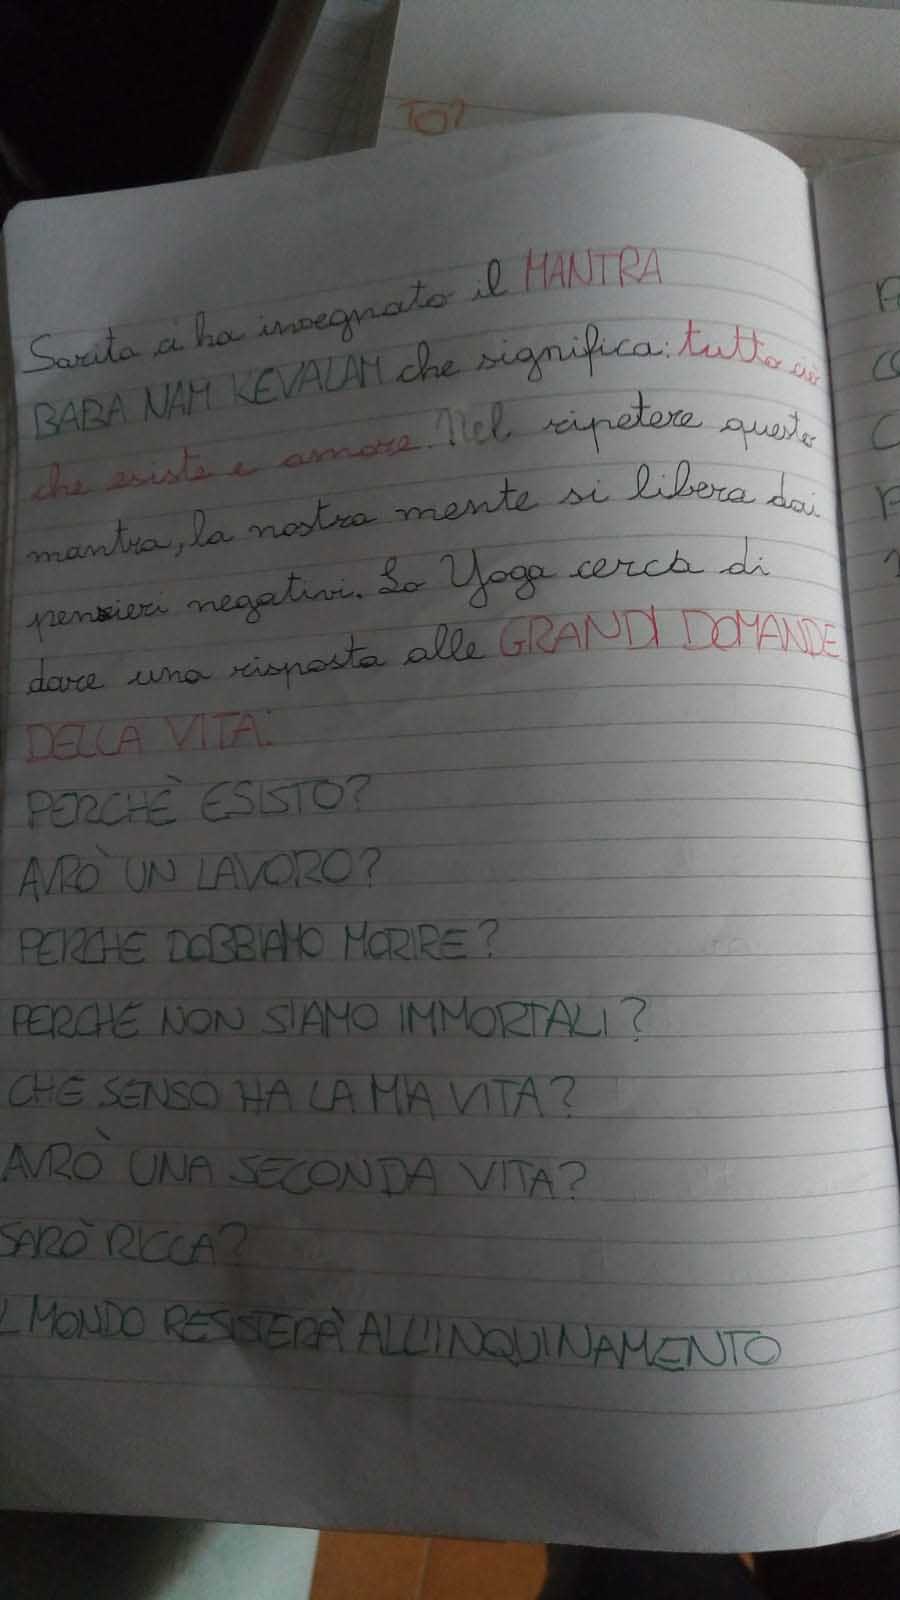 TO?
Sarita ci ha insegnato il MANTRA
BABA NAM KEVALAM che significa: tutto ciò
che esiste e amore. Nel ripetere questo
mantra, la nostra mente si libera dai
pensieri negativi. Lo Yoga cerca di
dare una risposta alle GRANDI DOMANDE
DELLA VITA:
PERCHÈ ESISTO?
AVRÒ UN LAVORO?
PERCHE DOBBIAMO MORIRE?
PERCHE NON SIAMO IMMORTALI?
CHE SENSO HA LA MIA VITA?
AVRÒ UNA SECONDA VITA?
SARÒ RICCA?
L MONDO RESISTERÀ ALL'INQUINAMENTO